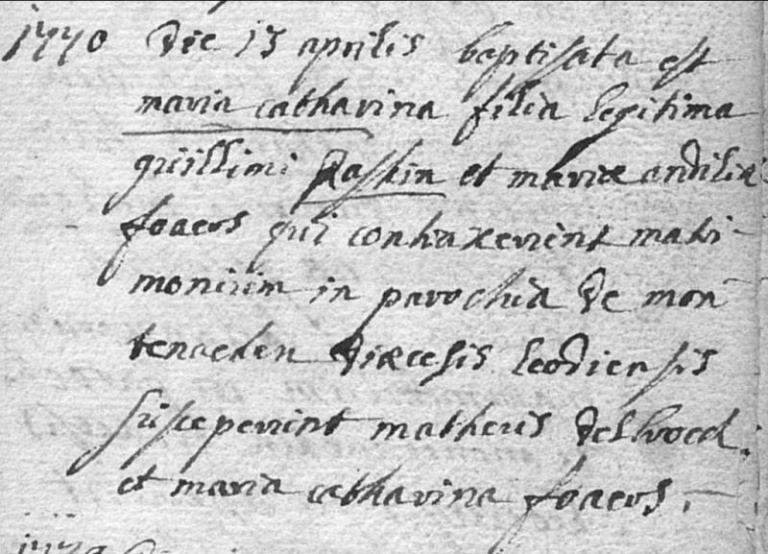 1770 Die 13 aprilis baptisata est
maria catharina filia legitima
guillimi Raskin et mariæ andiliæ
foaers qui contraxerunt matri-
monium in parochia de mon
tenaeken diæcesis leodiensis
susceperunt matheus
et maria catharina foaers.